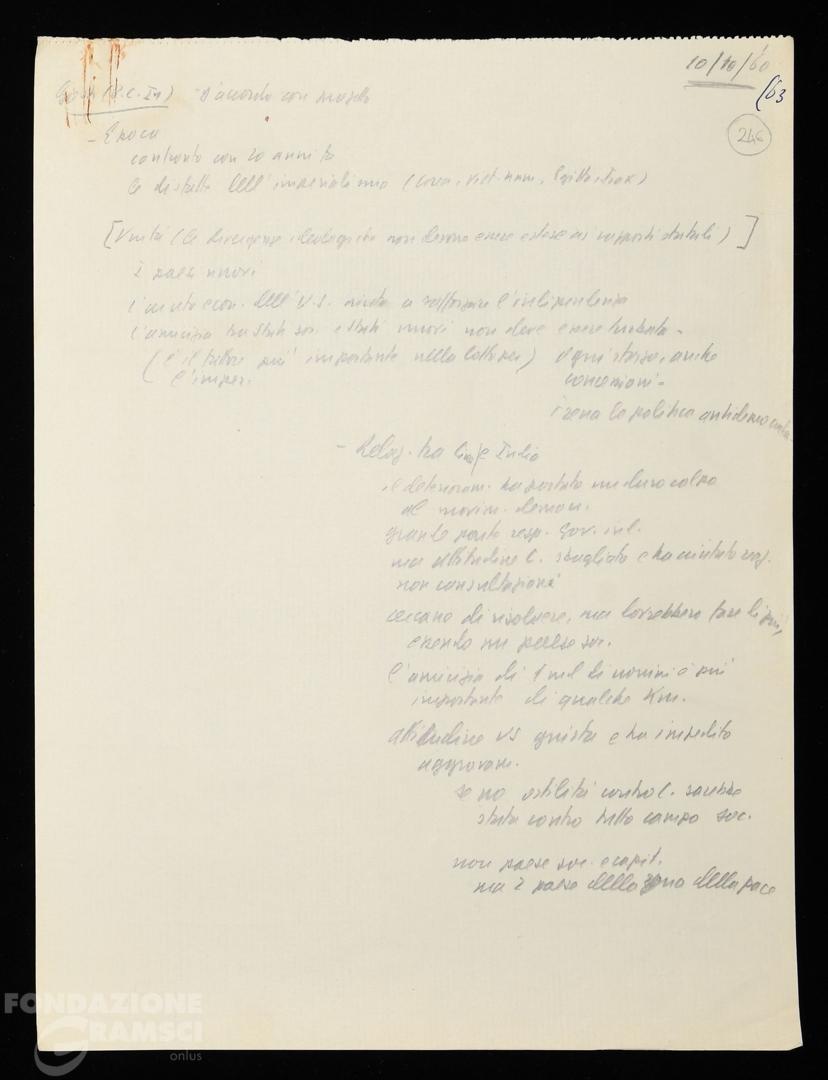 10/10/60
(63
246
(P.C. In) D'accordo con progetto
- Epoca
confronto con 20 anni fa
le disfatte dell'imperialismo (Corea, Viet-nam, Egitto, Irak)
[Unità (le divergenze ideologiche non devono essere estese ai rapporti statali)]
I paesi nuovi
L'aiuto econ. dell'U.S. aiuta a rafforzare l'indipendenza
L'amicizia tra Stati soc. e Stati nuovi non deve essere turbata -
(è il fattore più importante nella lotta per) ogni sforzo, anche
l'imper. concessioni -
la politica antidemocratica
- Relaz. tra Cina e India
il deterioram. ha portato un duro colpo
al movim. democr.
grande parte resp. gov. ind.
ma attitudine C. sbagliata e ha aiutato reaz.
non consultazioni
cercano di risolvere, ma dovrebbero fare di più,
essendo un paese soc.
l'amicizia di 1 mil di uomini è più
importante di qualche Km.
attitudine US giusta e ha impedito
aggravam.
se no ostilità contro C. sarebbe
stata contro tutto campo soc.
non paese soc. e capit.
ma è paese della zona della pace
FONDAZIONE
GRAMSCI
onlus